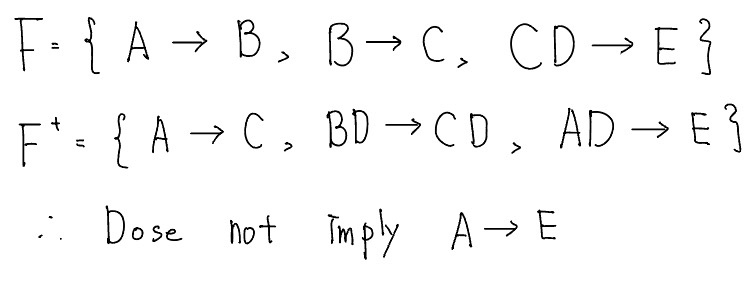 F = { A → B, B → C, CD → E }
F⁺ = { A → C, BD → CD, AD → E }
∴ Dose not imply A → E